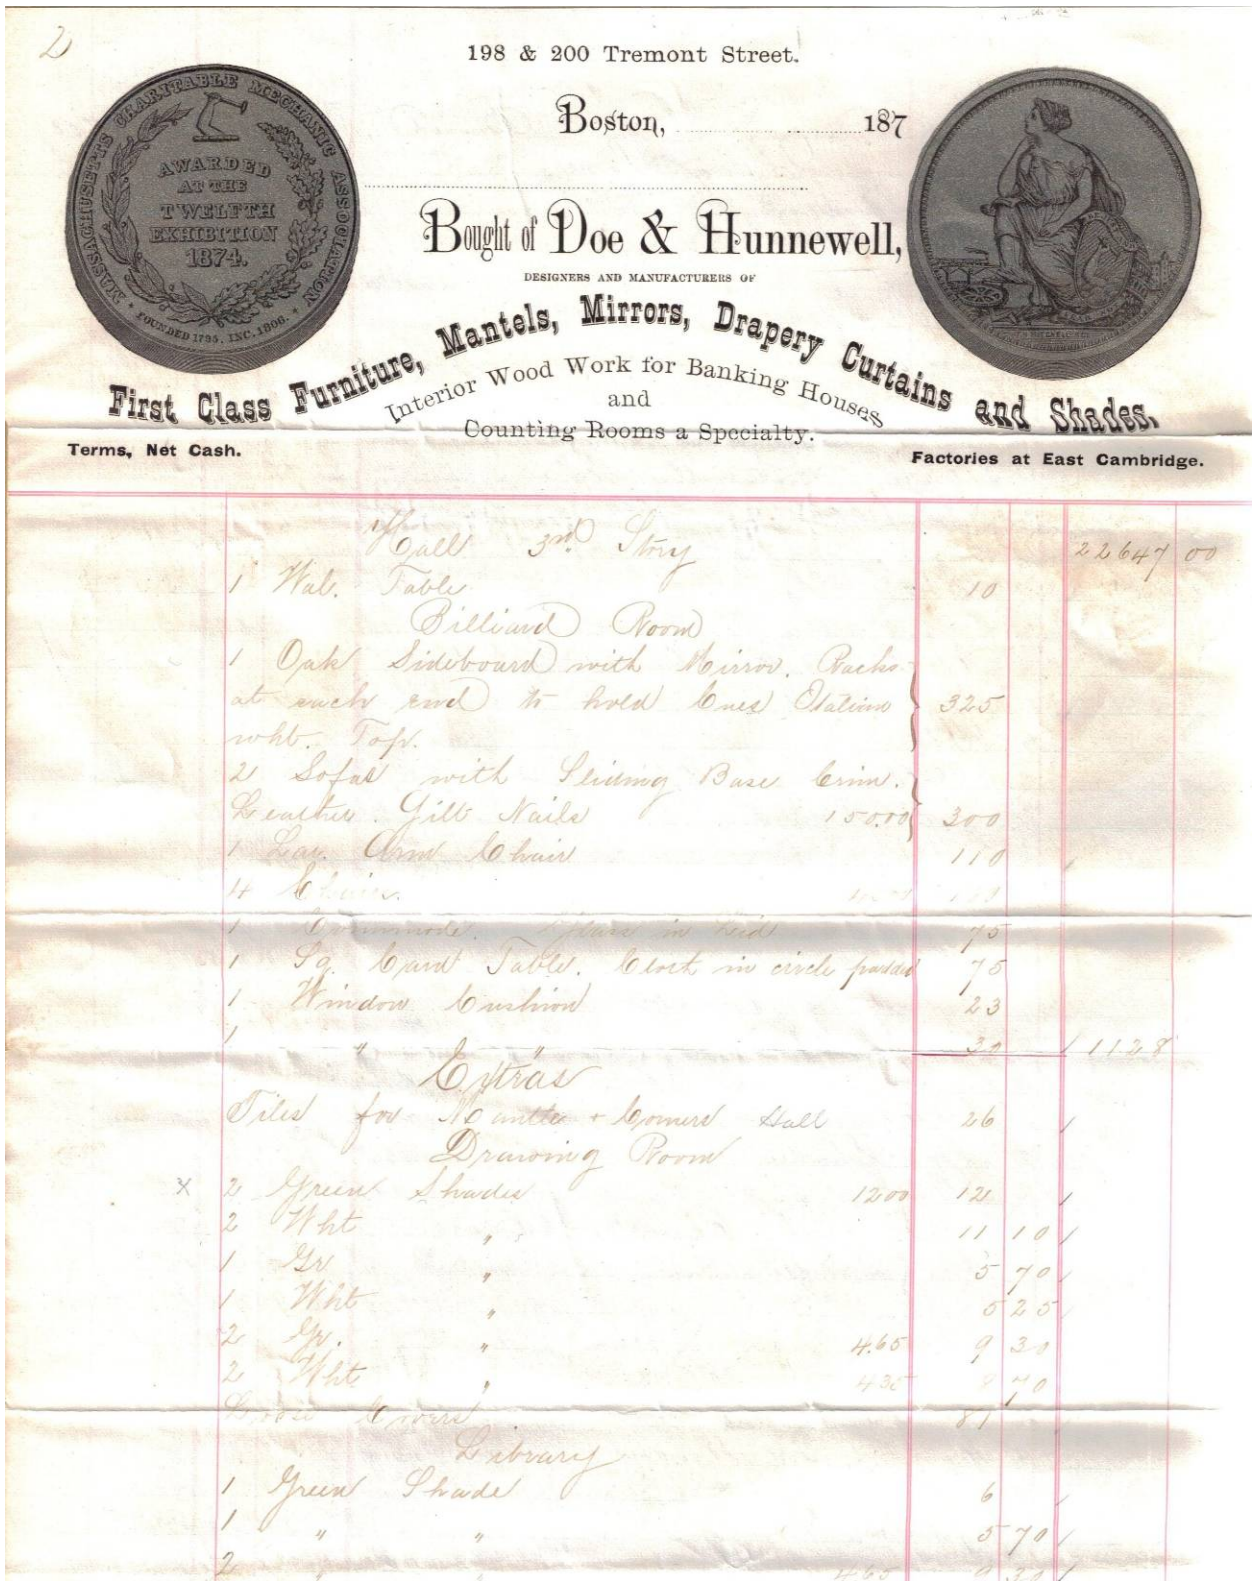 2
198 & 200 Tremont Street.
Boston, 187
MASSACHUSETTS CHARITABLE MECHANIC ASSOCIATION
AWARDED
AT THE
TWELFTH
EXHIBITION
1874.
FOUNDED 1795. INC. 1806.
Bought of Doe & Hunnewell,
DESIGNERS AND MANUFACTURERS OF
First Class Furniture, Mantels, Mirrors, Drapery Curtains and Shades,
Interior Wood Work for Banking Houses,
and
Counting Rooms a Specialty.
Terms, Net Cash.
Factories at East Cambridge.
Hall 3rd Story 22647 00
1 Wal. Table 10
Billiard Room
1 Oak Sideboard with Mirror. Racks
at each end to hold Cues Italian 325
wht. Top.
2 Sofas with Sliding Base Crim.
Leather. Gilt Nails 150.00 300
1 Lar. Arm Chair 110
4 Chairs.
1 Commode. 75
1 Sq. Card Table. Cloth in circle 75
1 Window Cushion 23
1 " " 30 1128
Extras
Tiles for Mantle + Corners Hall 26
Drawing Room
x 2 Green Shades 1200 12
2 Wht " 11 10
1 Gr " 5 70
1 Wht " 5 25
2 Gr. " 4.65 9 30
2 Wht " 435 8 70
Loose Covers 81
Library
1 Green Shade 6
1 " " 5 70
2 " " 465 9 30